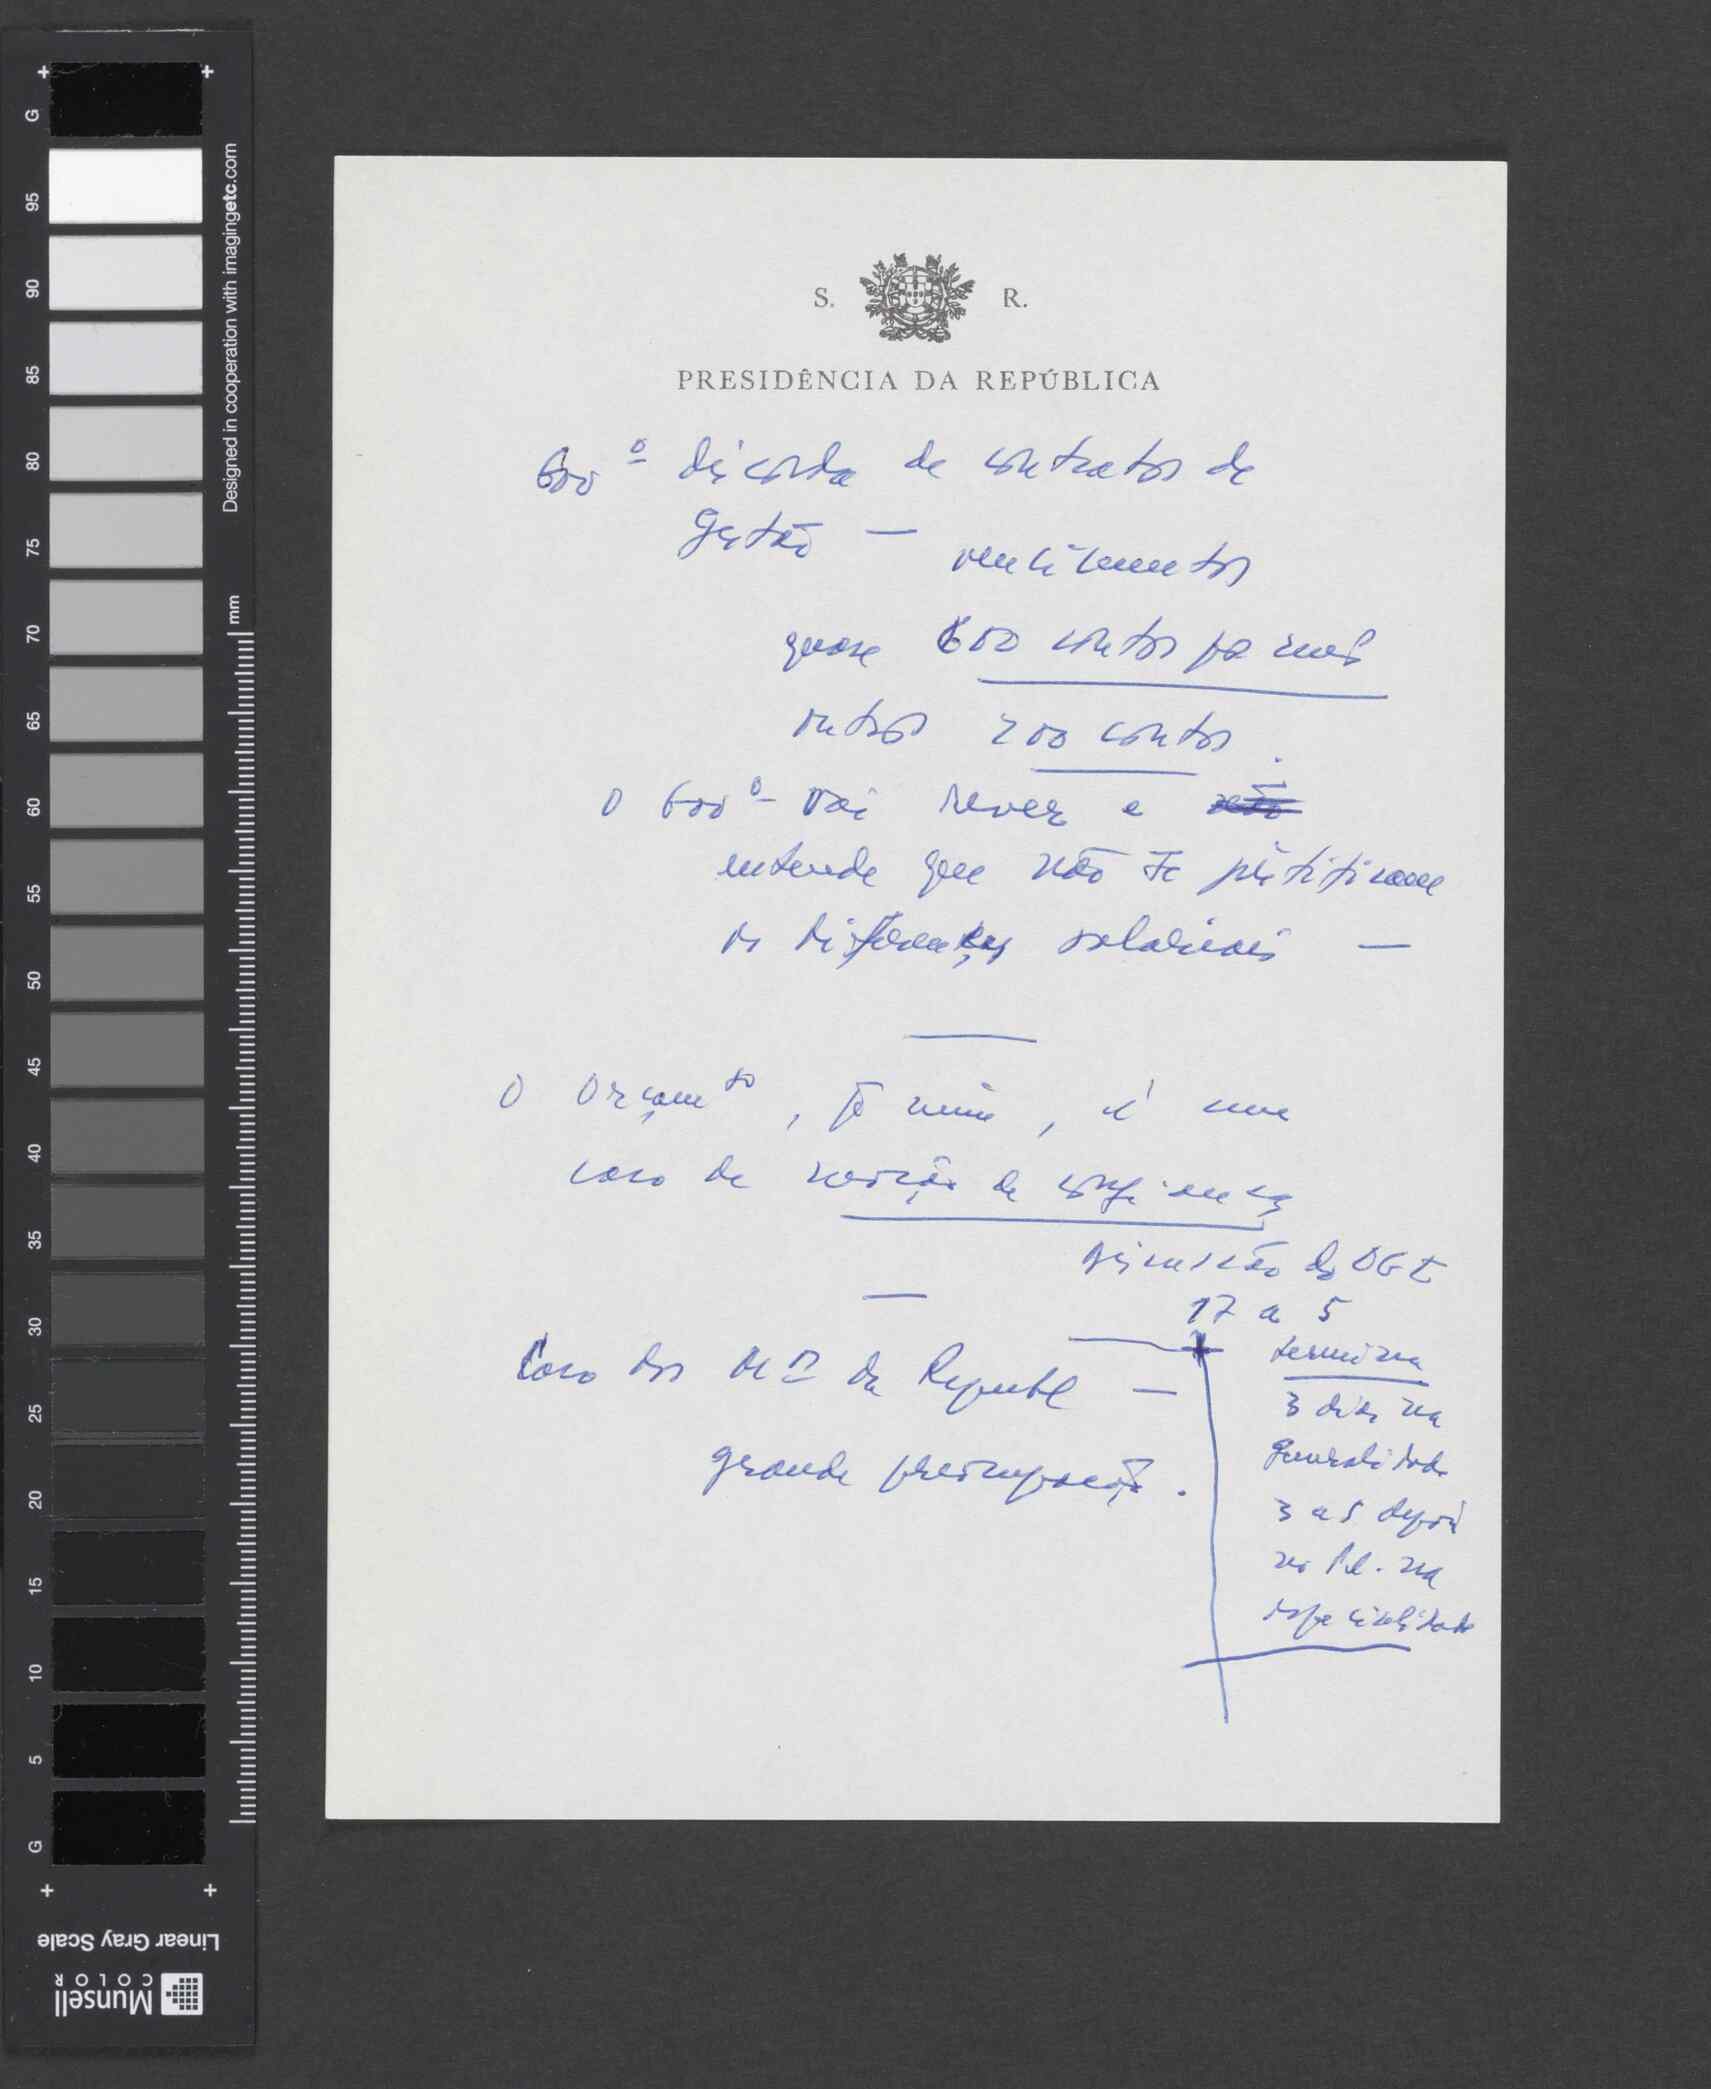 S. R.
PRESIDÊNCIA DA REPÚBLICA
Govº discorda de contratos de
gestão — vencimentos
quase 600 contos por mês
outros 200 contos.
O Govº vai rever e não
entende que não se justifique
as diferenças salariais —
O Orçamto, p̃ mim, é um
caso de moção de confiança
Discussão do OGE
17 a 5
termina
3 dias na
generalidade
3 a 5 depois
no Pl. na
especialidade
Caso dos Mos da Republ —
grande preocupação.
G
95
90
85
80
75
70
65
60
55
50
45
40
35
30
25
20
15
10
5
G
mm
Designed in cooperation with imagingetc.com
Linear Gray Scale
Munsell
COLOR